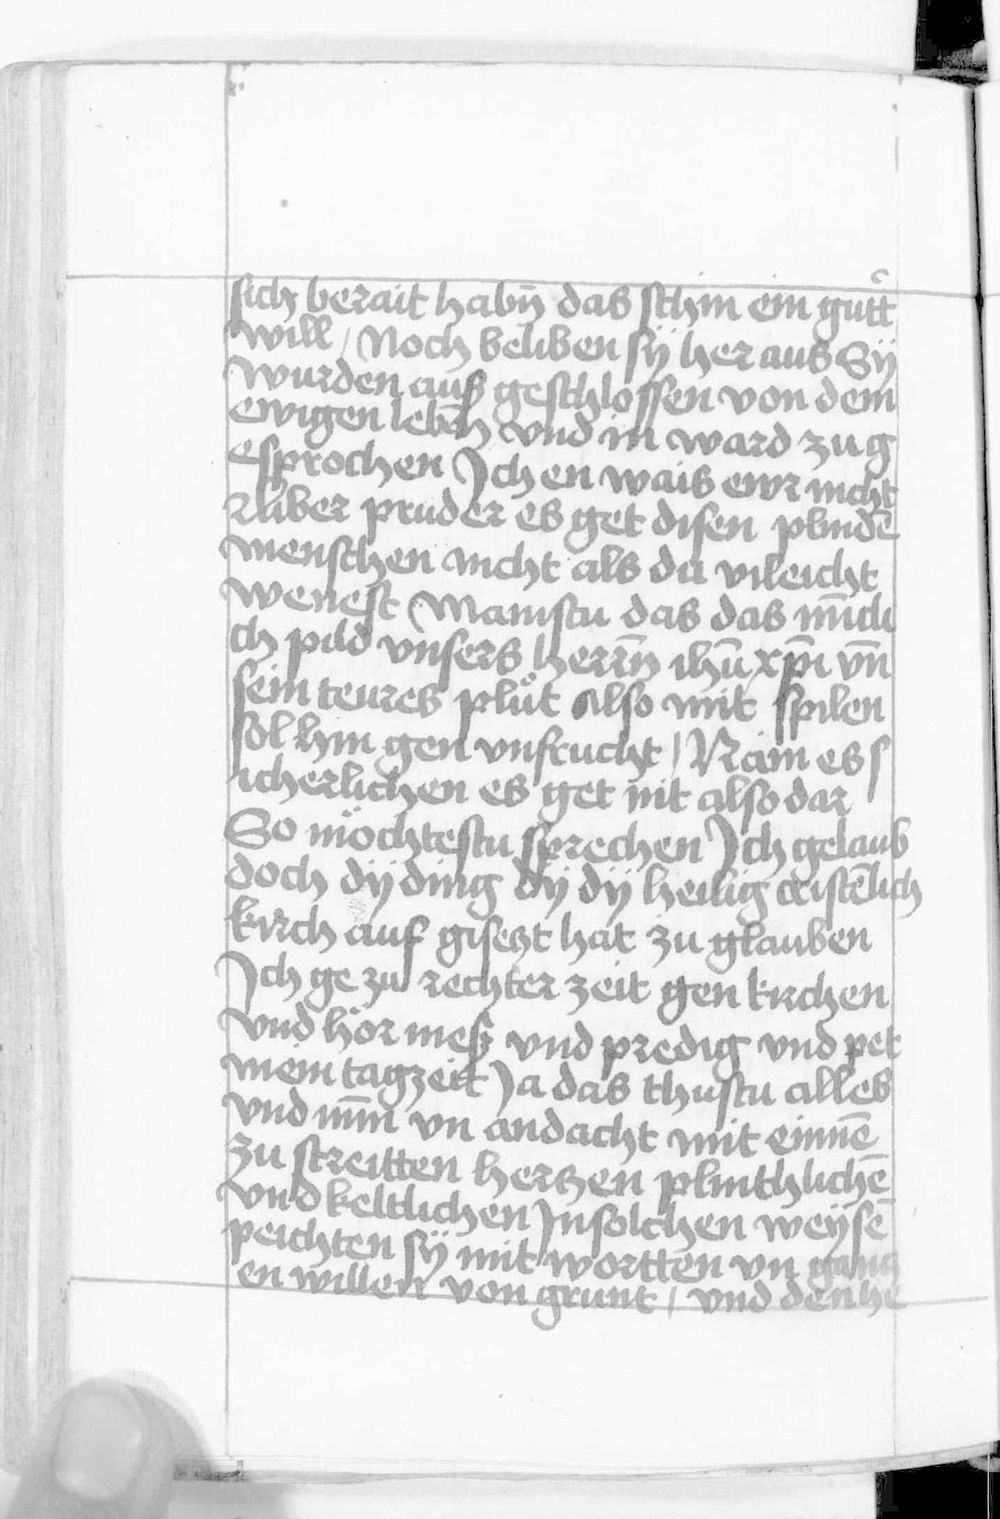 sich berait habn̄ das schin ein gůtt
will / Noch beliben sÿ her aus Sÿ
wurden aus geschlossen von dem
ewigen lebēn vnd in ward zu g
esprochen Ich en wais ewr nicht
liber pruder es get disen plindē
menschen nicht als du vileicht
wenest Mainstu das das mīcli
ch pild vnsers herrn̄ ihū xpī vn̄
sein teures plůt also mit spilen
sol hin gen vnfrucht / Nain es s
icherlichen es get nit also dar
So möchtestu sprechen Ich gelaub
doch dÿ ding dÿ dÿ heilig cristēlich
kirch auf gisetzt hat zu glauben
Ich ge zu rechter zeit gen kirchen
vnd hör mess vnd predig vnd pet
mein tagzeit Ja das thustu alles
vnd nim̄ vn andacht mit einnē
zu streitten hertzen plinthlichē
vnd keltlichen In solchen weÿsē
peichten sÿ mit wortten vn gantz
en willen von grunt / vnd den he